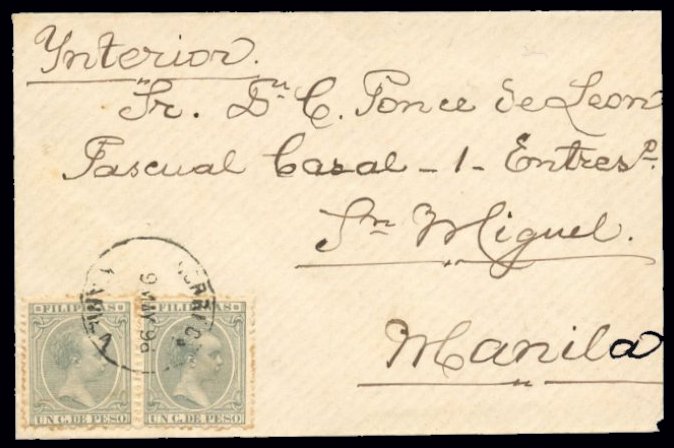 Ynterior.
Sr. Dn C. Ponce de Leon
Pascual Casal - 1 - Entreso.
Sn Miguel.
Manila
FILIPINAS FILIPINAS
UN C. DE PESO UN C. DE PESO